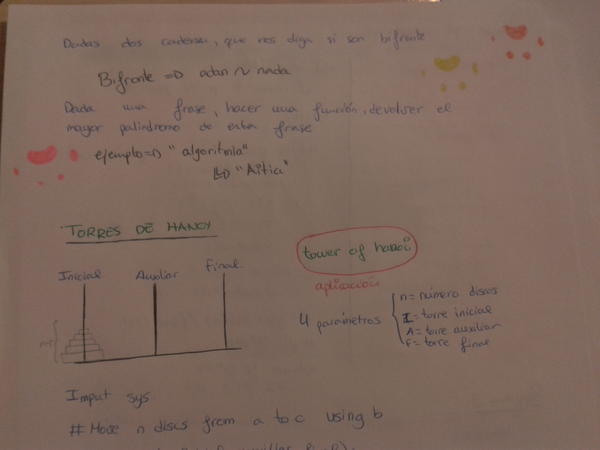 Dadas dos cadenas, que nos diga si son bifronte
Bifronte => adan ~ nada
Dada una frase, hacer una función, devolver el
mayor palíndromo de esta frase
ejemplo => "algoritmia"
"Aitia"
TORRES DE HANOY
tower of hanoi
aplicación
Inicial Auxiliar Final
4 parámetros
n = número discos
I = torre inicial
A = torre auxiliar
F = torre final
Imput sys
# Move n discs from a to c using b